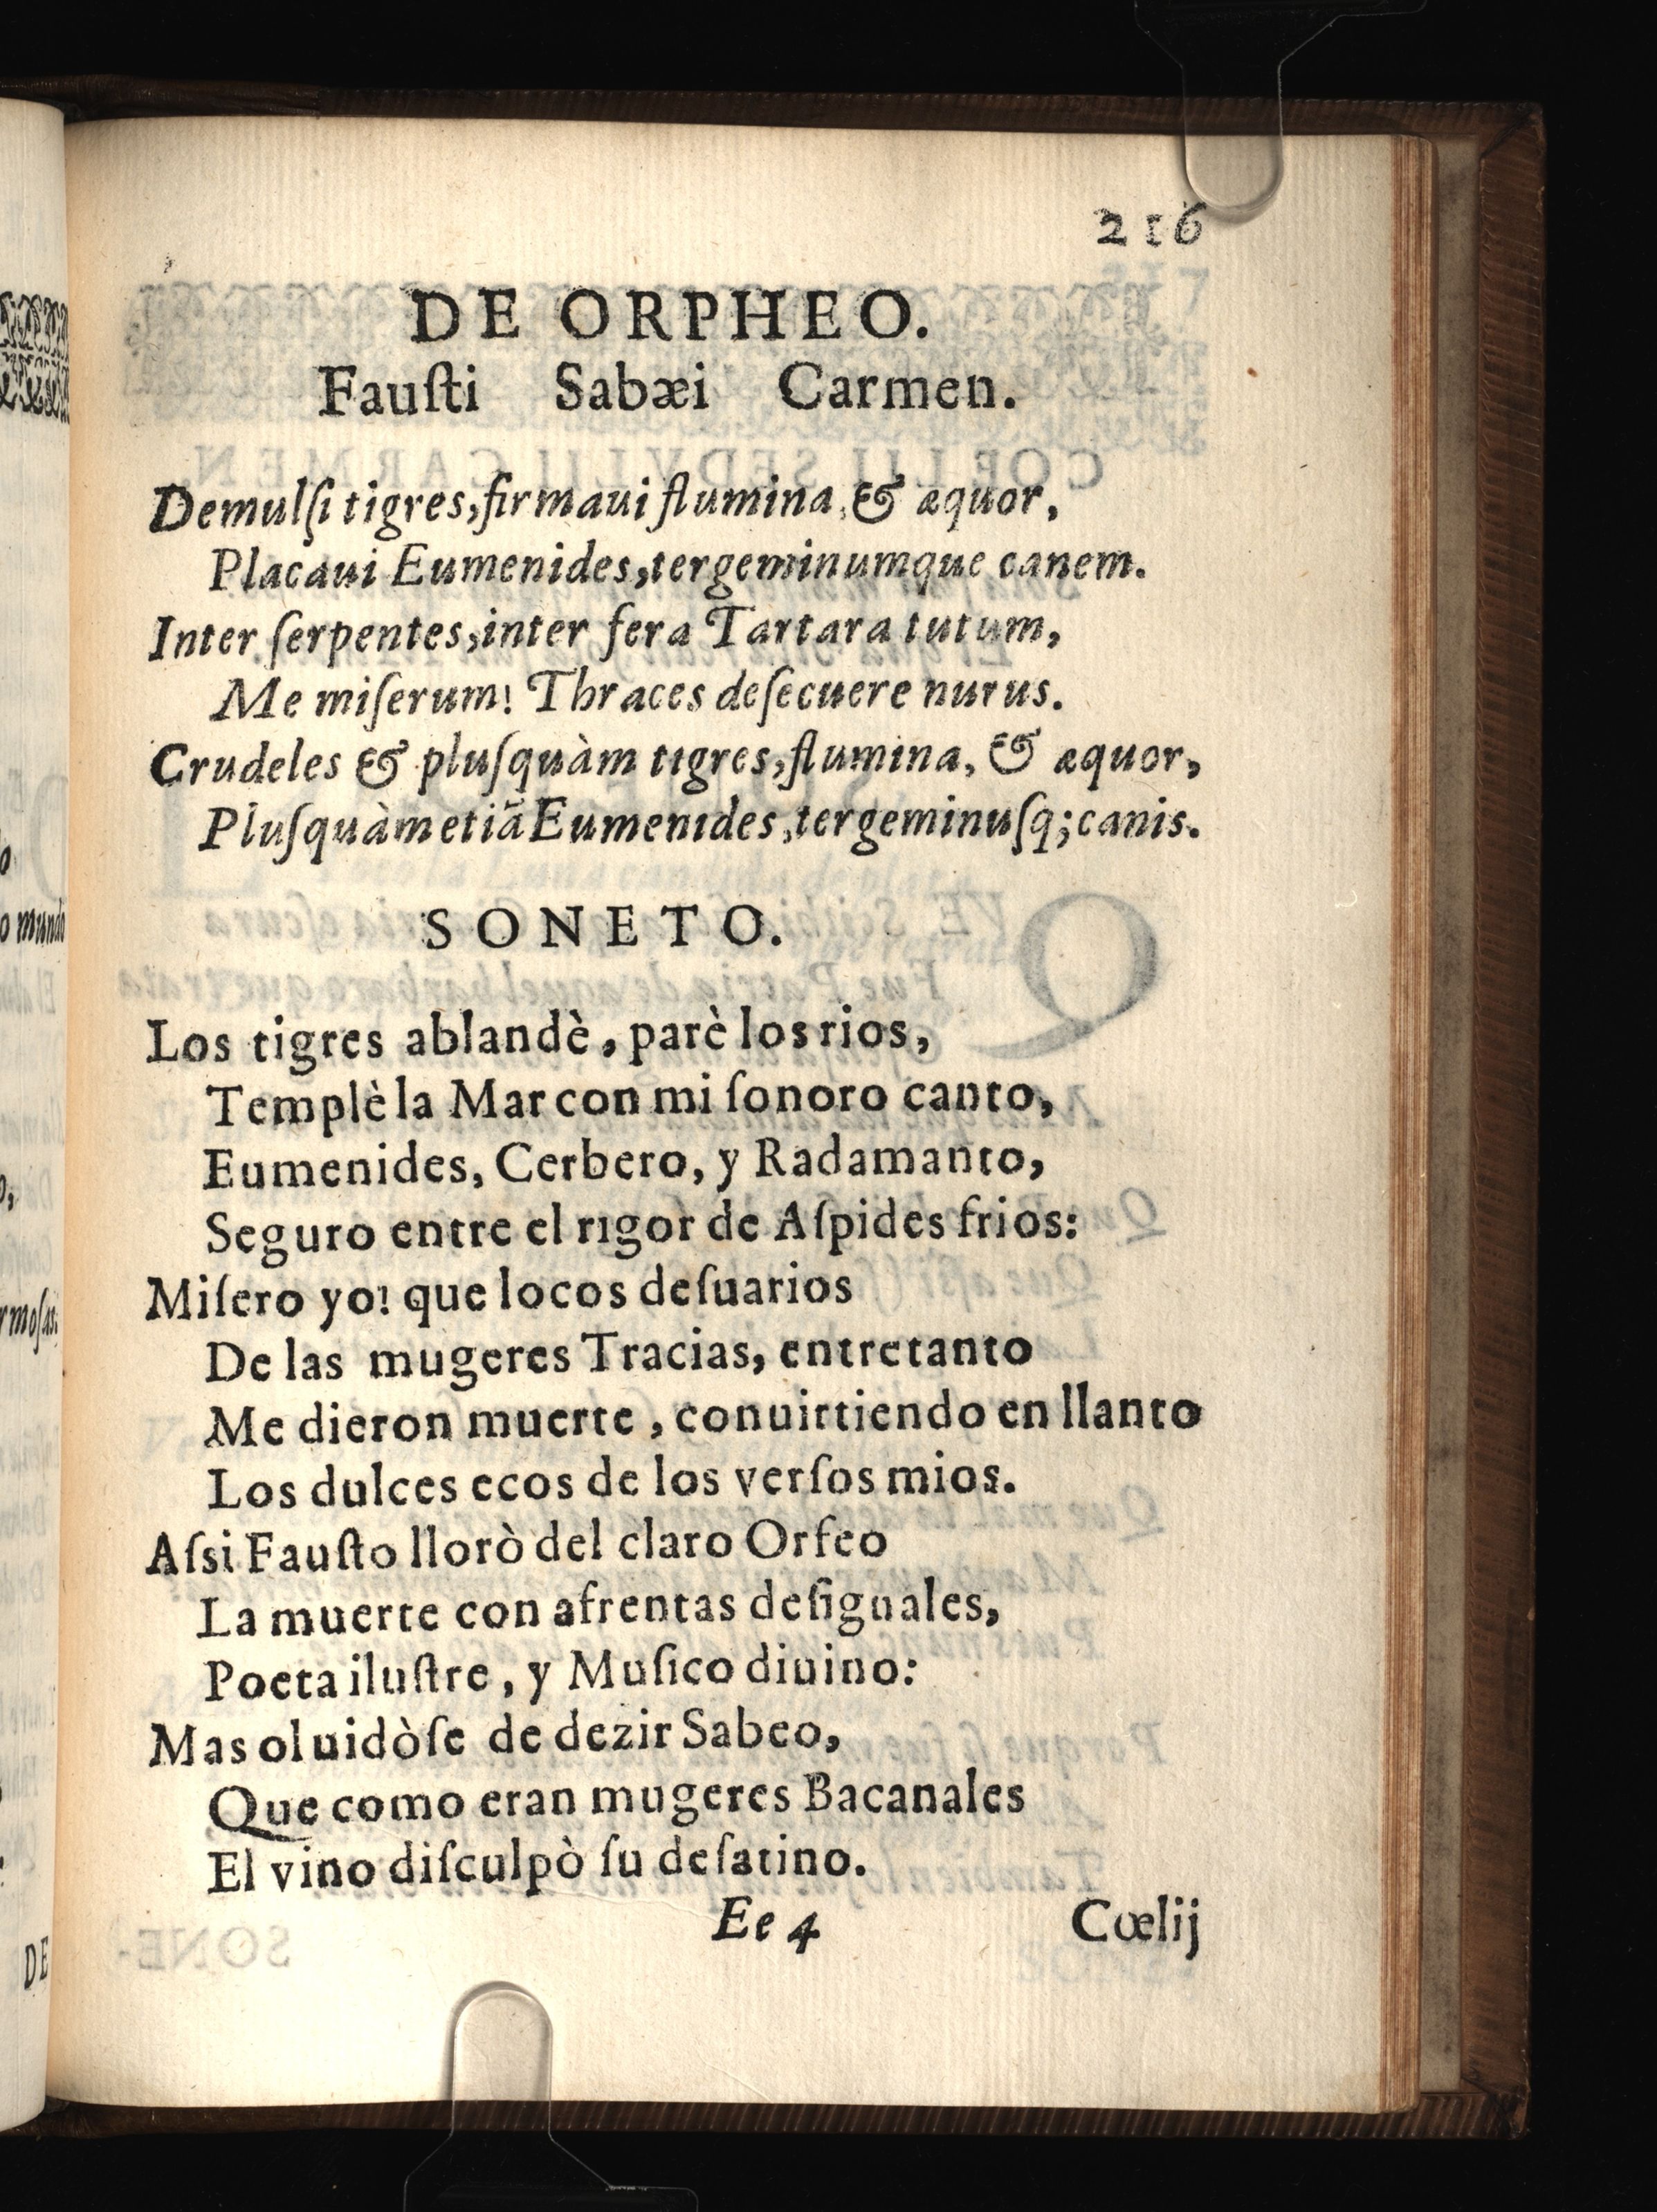 216
DE ORPHEO.
Fauſti Sabæi Carmen.
Demulſi tigres, firmaui flumina, & æquor,
Placaui Eumenides, tergeminumque canem.
Inter ſerpentes, inter fera Tartara tutum,
Me miſerum! Thraces deſecuere nurus.
Crudeles & pluſquàm tigres, flumina, & æquor,
Pluſquàm etiã Eumenides, tergeminuſq; canis.
SONETO.
Los tigres ablandè, parè los rios,
Templè la Mar con mi ſonoro canto,
Eumenides, Cerbero, y Radamanto,
Seguro entre el rigor de Aſpides frios:
Miſero yo! que locos deſuarios
De las mugeres Tracias, entretanto
Me dieron muerte, conuirtiendo en llanto
Los dulces ecos de los verſos mios.
Aſsi Fauſto llorò del claro Orfeo
La muerte con afrentas deſiguales,
Poeta iluſtre, y Muſico diuino:
Mas oluidòſe de dezir Sabeo,
Que como eran mugeres Bacanales
El vino diſculpò ſu deſatino.
Ee 4 Cœlij